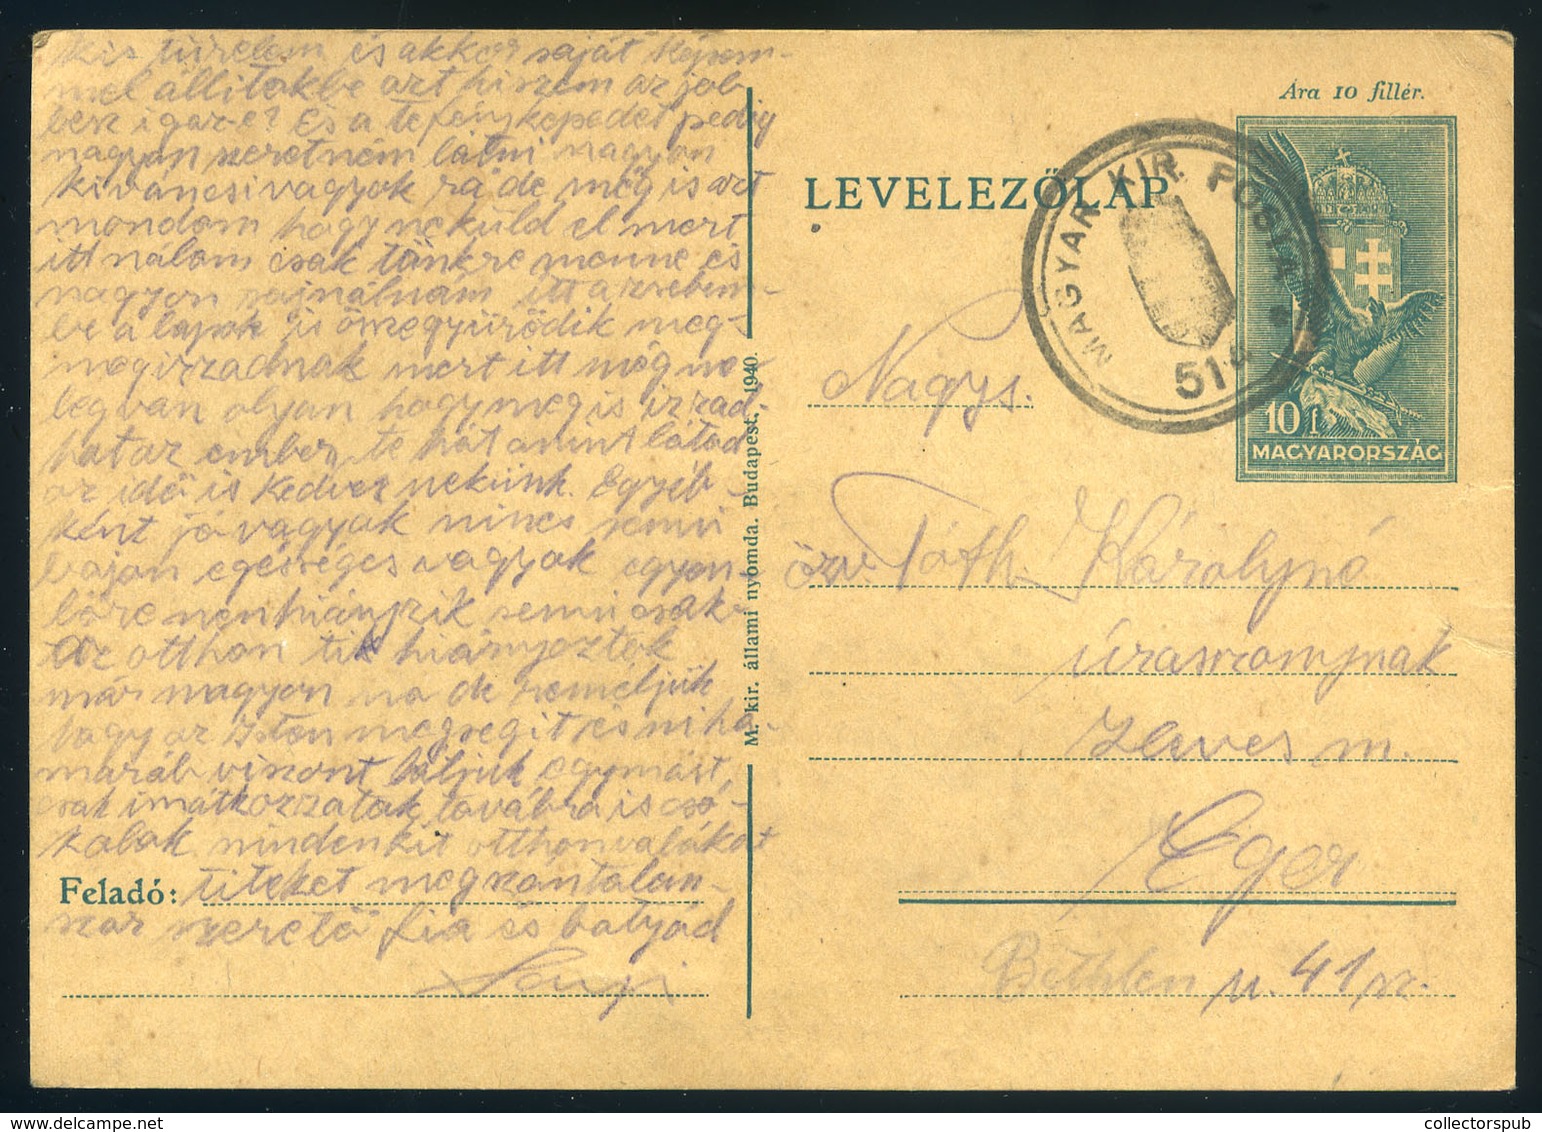 kis türelem és akkor saját képem-
mel állitokbe azt hiszem az job
besz igaz-e? És a te fényképedet pedig
nagyon szeretném látni nagyon
kiváncsivagyok rá de még is azt
mondom hogy neküld el mert
itt nálam csak tönkre menne és
nagyon sajnálnám itt a zsebem-
be a lapok is összegyürődik meg-
megizzadnak mert itt még me-
leg van olyan hogy meg is izzad,
hat az ember, te hát amint látod
az idő is kedvez nekünk. Egyéb-
ként jó vagyok nincs semmi
bajom egésséges vagyok egyen-
lőre nem hiányzik semmi csak
az otthon tik hiányoztok
már nagyon na de reméljük
hogy az Isten megsegit és miha-
maráb viszont látjuk egymást,
csak imátkozzatok továbbra is csó-
kolok mindenkit otthonvalókat
Feladó: titeket megszámtalan-
szor szerető fia és bátyád
M. kir. állami nyomda. Budapest, 1940.
Ára 10 fillér.
LEVELEZŐLAP
MAGYAR KIR. POSTA
51
10 f
MAGYARORSZÁG
Nagys.
özv Tóth Károlyné
úrasszonynak
Heves m.
Eger
Bethlen u. 41 sz.
collectorspub